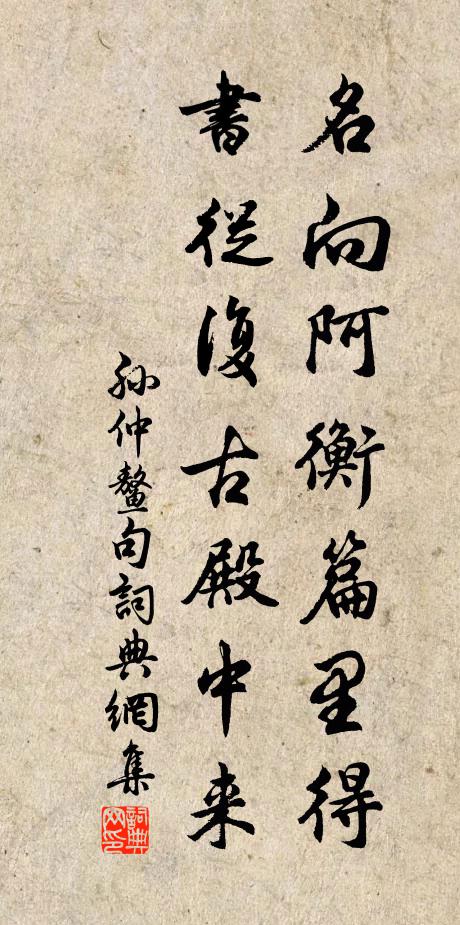 名向阿衡篇里得
書從復古殿中来
孫仲鳌句詞典網集
詞典網印